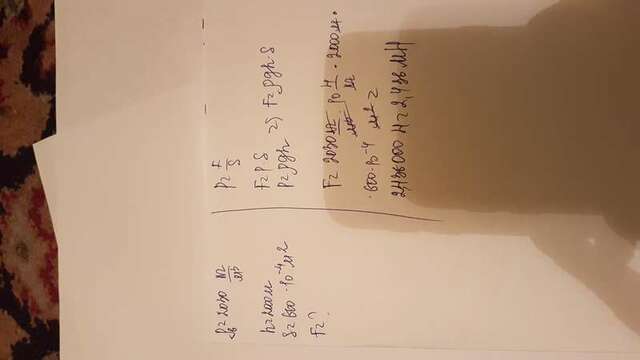 ρв = 2030 кг/м³
h = 2000 м
S = 600 · 10⁻⁴ м²
F = ?
P = F/S
F = P S
P = ρgh => F = ρgh · S
F = 2030 кг/м³ · 10 Н/кг · 2000 м ·
· 600 · 10⁻⁴ м² =
2,436000 Н = 2,436 МН